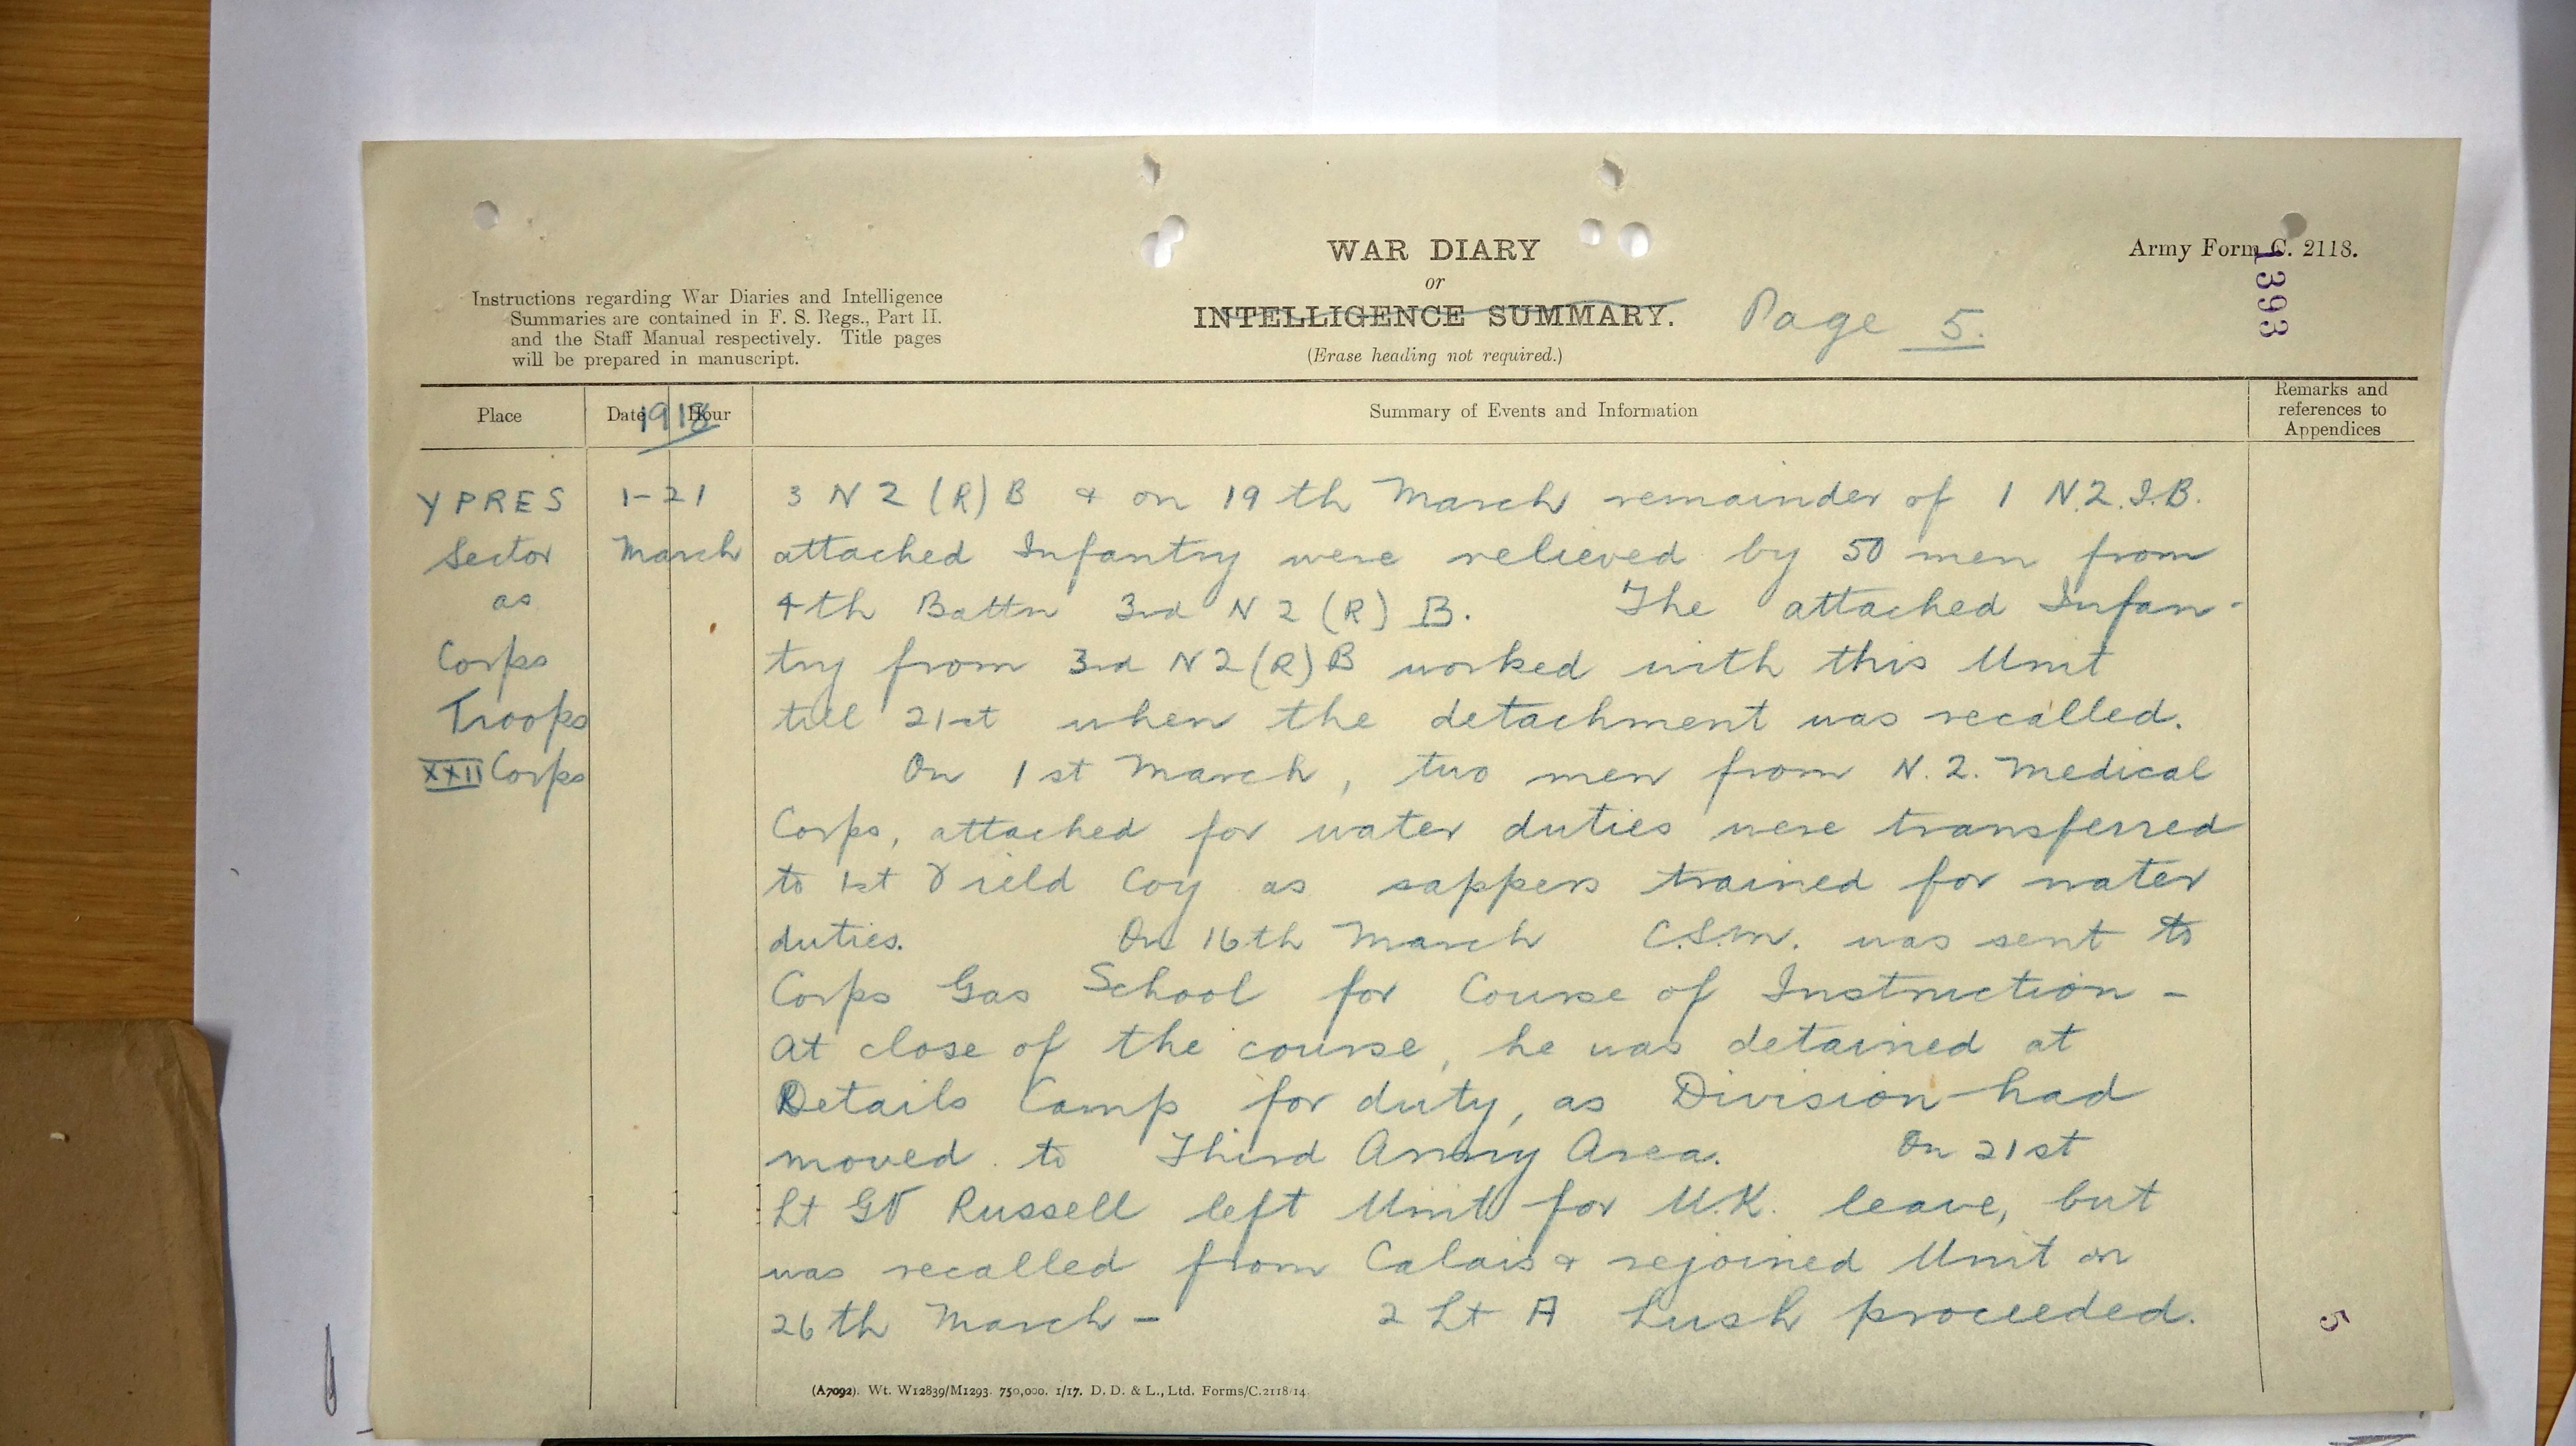 WAR DIARY
or
INTELLIGENCE SUMMARY.
(Erase heading not required.)
Page 5.
Army Form C. 2118.
1393
Instructions regarding War Diaries and Intelligence
Summaries are contained in F. S. Regs., Part II.
and the Staff Manual respectively. Title pages
will be prepared in manuscript.
Place
Date
Hour
1918
Summary of Events and Information
Remarks and
references to
Appendices
YPRES
Sector
as
Corps
Troops
XXII Corps
1-21
March
3 NZ (R) B & on 19th March remainder of 1 N.Z.I.B.
attached Infantry were relieved by 50 men from
4th Battn 3rd NZ (R) B. The attached Infan-
try from 3rd NZ (R) B worked with this Unit
till 21st when the detachment was recalled.
On 1st March, two men from N.Z. Medical
Corps, attached for water duties were transferred
to 1st Field Coy as sappers trained for water
duties. On 16th March C.S.M. was sent to
Corps Gas School for Course of Instruction -
At close of the course, he was detained at
Details Camp for duty, as Division had
moved to Third Army Area. On 21st
Lt GF Russell left Unit for U.K. leave, but
was recalled from Calais & rejoined Unit on
26th March - 2 Lt A Lush proceeded.
5
(A7092). Wt. W12839/M1293. 750,000. 1/17. D. D. & L., Ltd. Forms/C.2118/14.